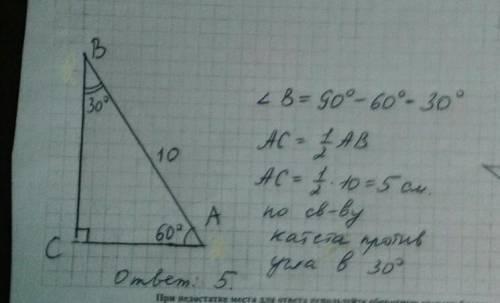 B
30°
10
60°
A
C
∠ B = 90° - 60° = 30°
AC = 1/2 AB
AC = 1/2 · 10 = 5 см.
по св-ву
катета против
угла в 30°
Ответ: 5.
При недостатке места для ответа используйте